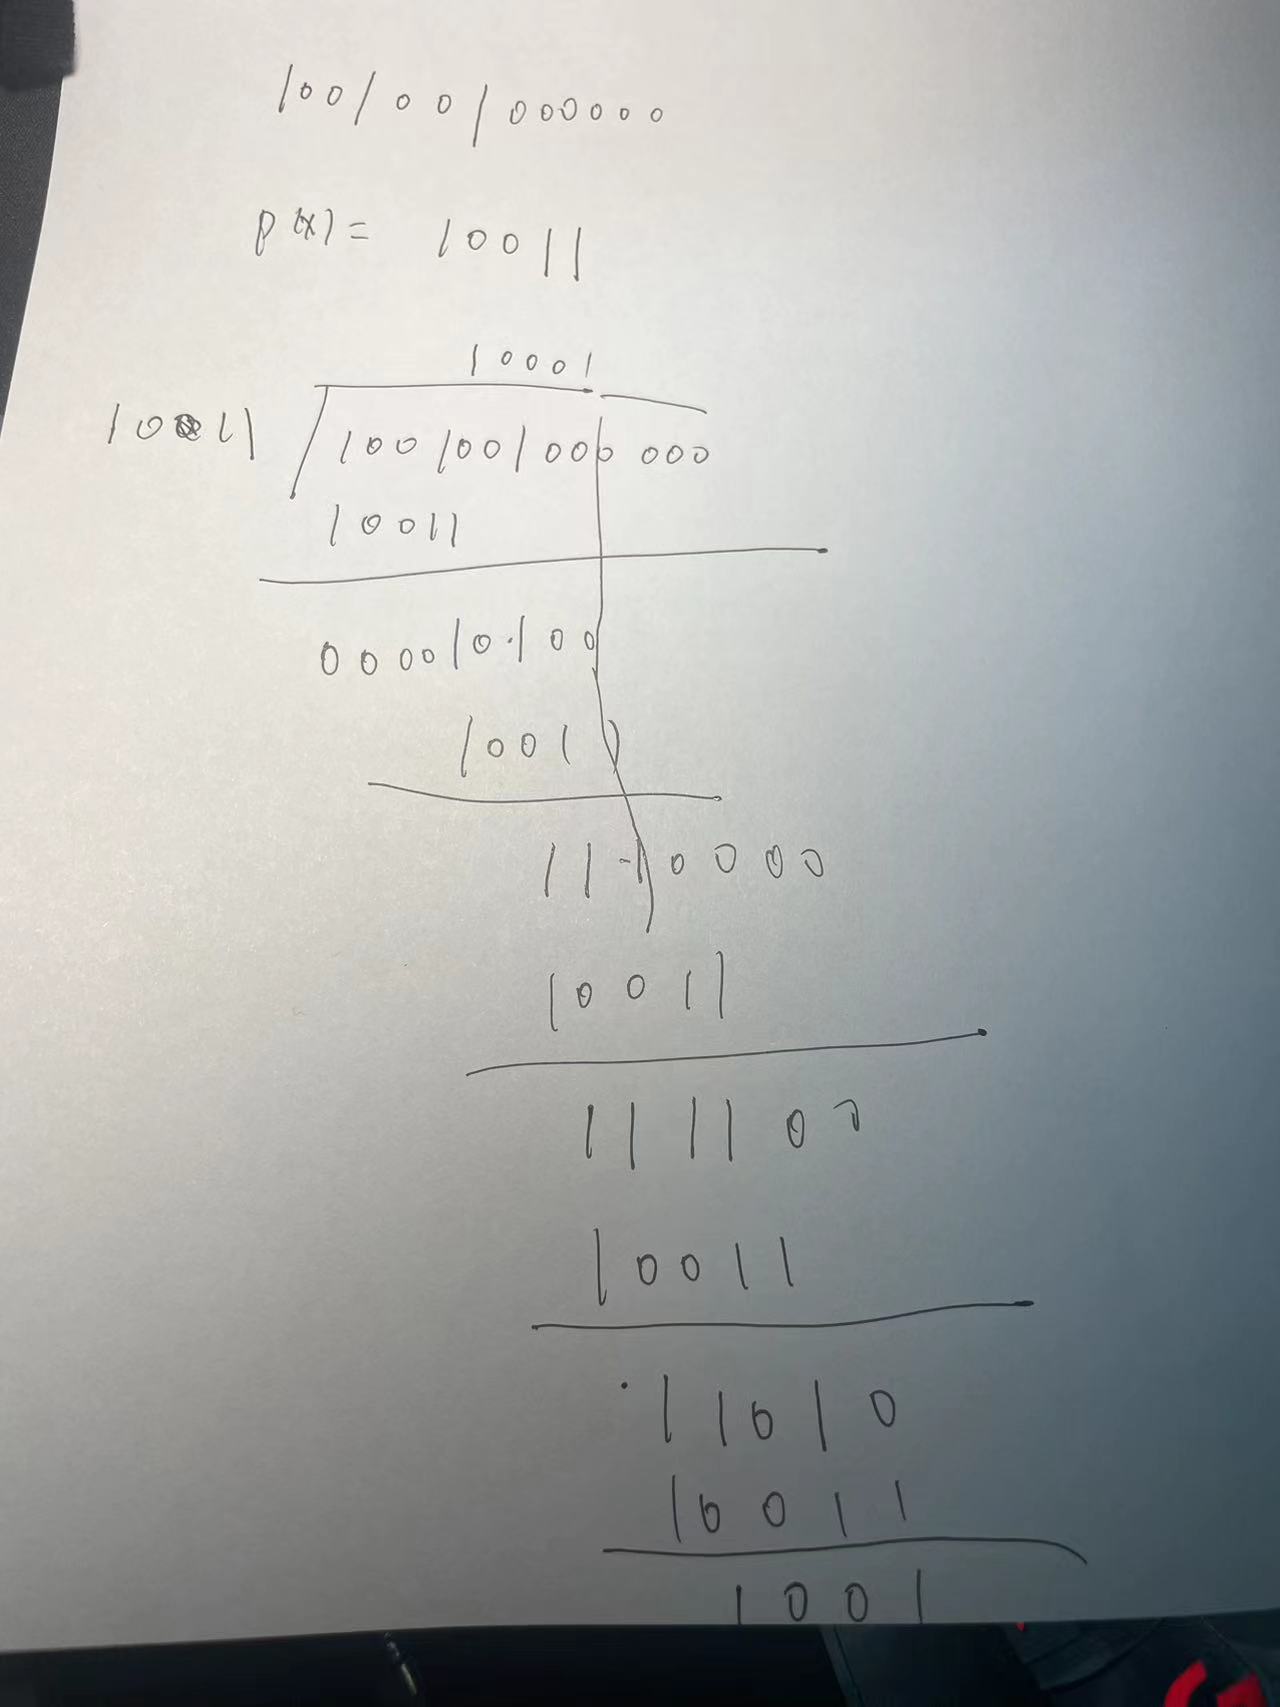 1001001000000
P(x)= 10011
10001
10011
1001001000000
10011
000010100
10011
1110000
10011
111100
10011
11010
10011
1001